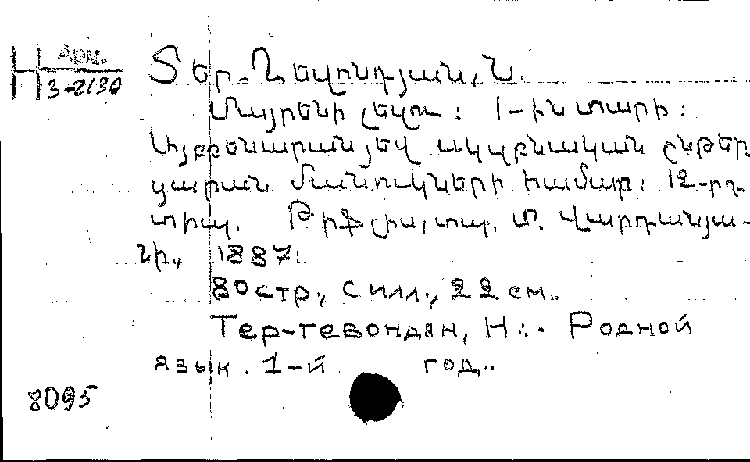 H Арм. 3-2130
Տեր-Ղևոնդյան, Ն.
Մայրենի լեզու: 1-ին տարի:
Այբբենարան յեվ սկզբնական ընթեր
ցարան մանուկների համար: 12-րդ
տիպ. Թիֆլիս, տպ. Մ. Վարդանյա-
նի, 1887.
80 стр., с илл., 22 см.
Тер-Гевондян, Н. Родной
язык. 1-й год..
8095